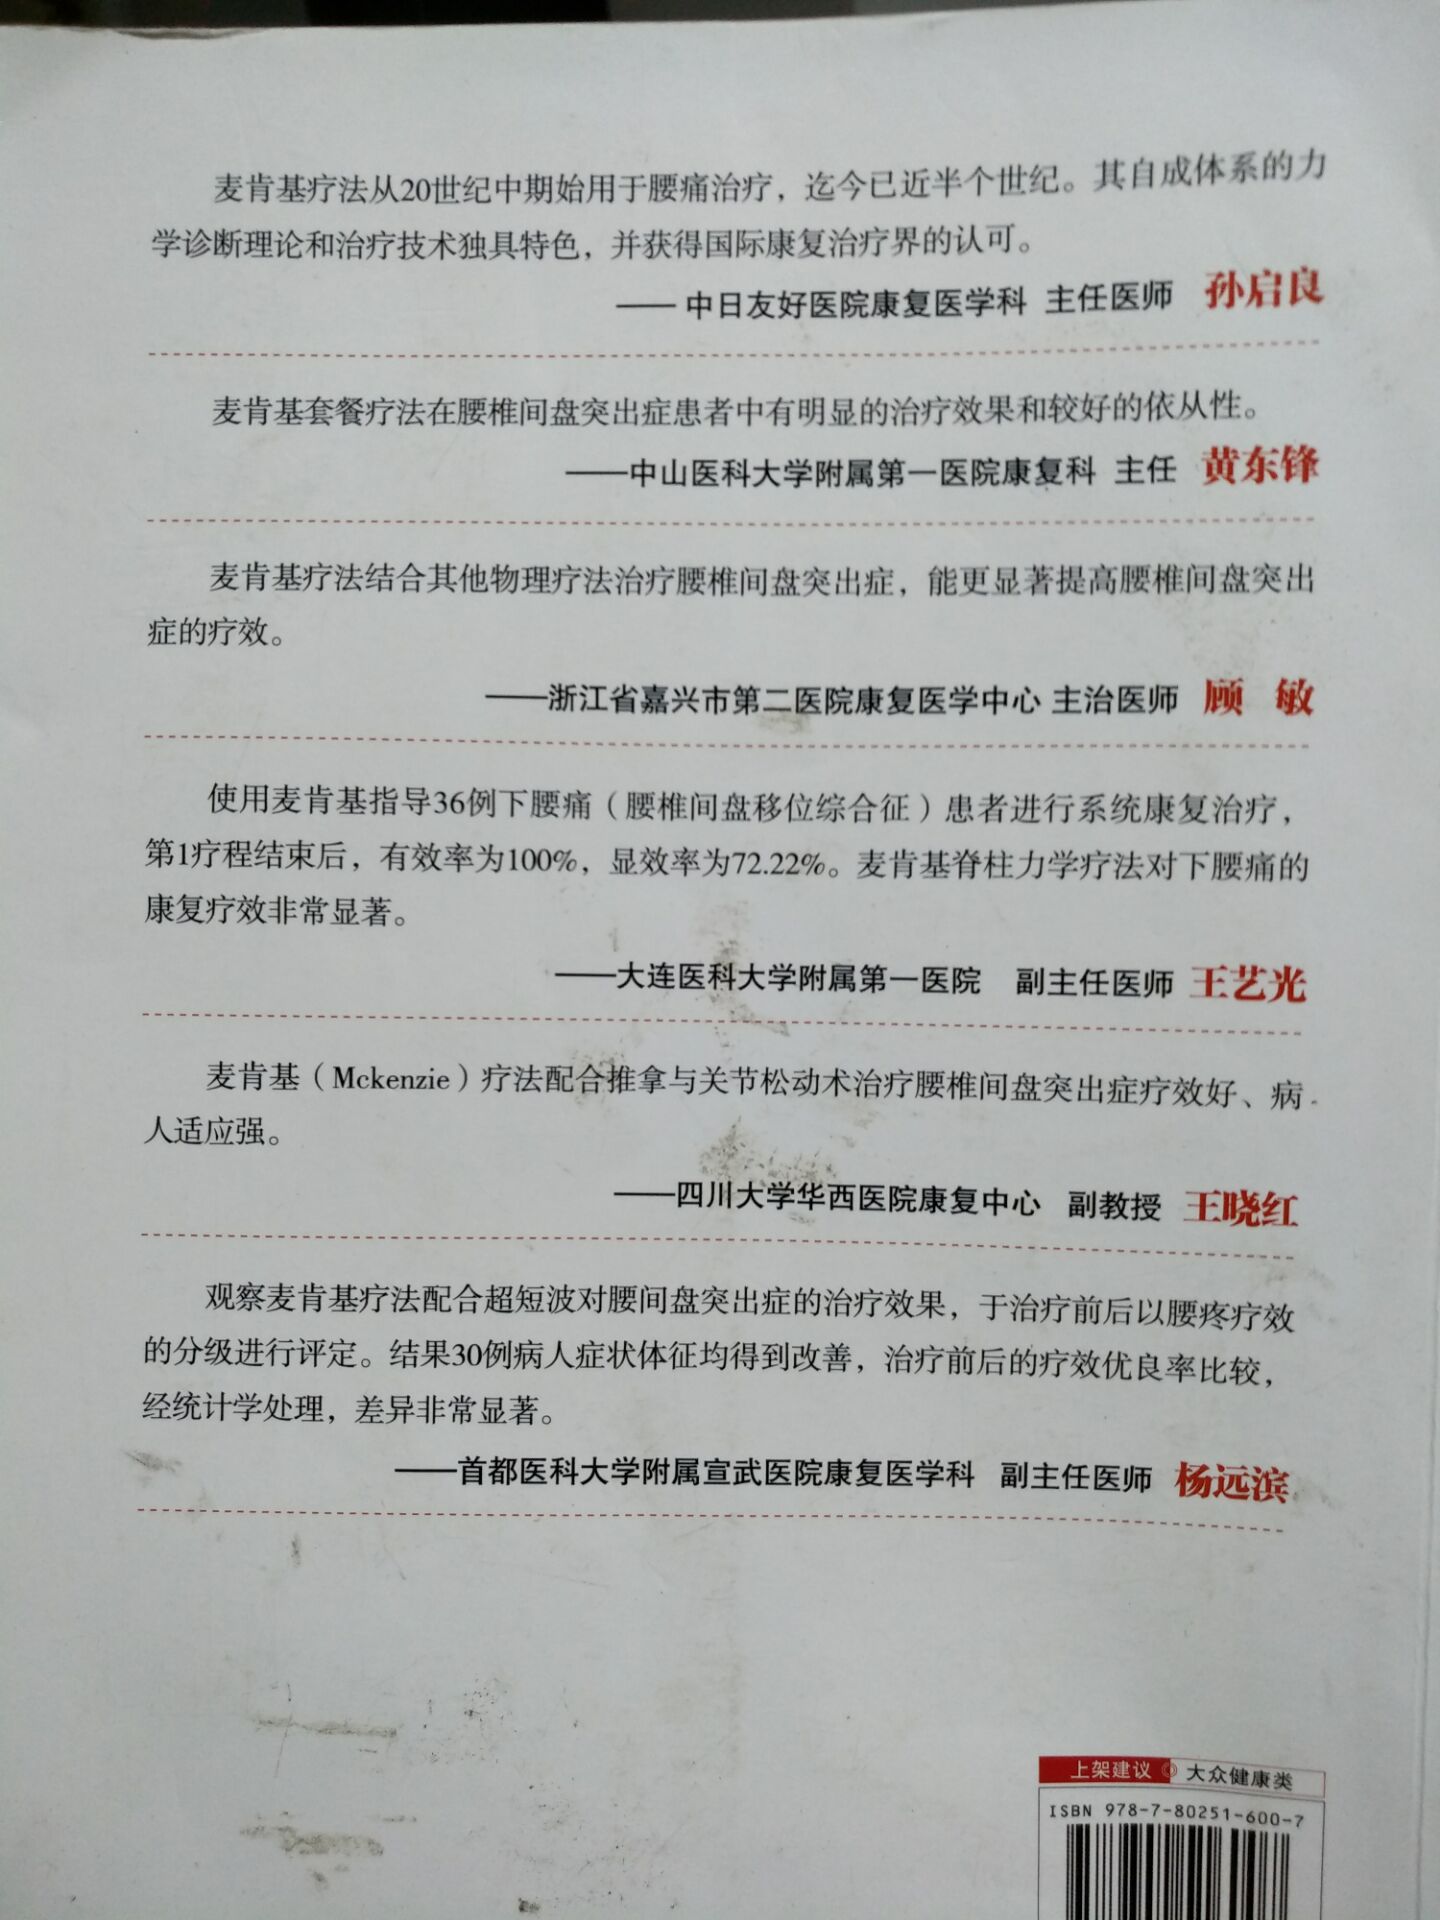 麦肯基疗法从20世纪中期始用于腰痛治疗，迄今已近半个世纪。其自成体系的力
学诊断理论和治疗技术独具特色，并获得国际康复治疗界的认可。
—— 中日友好医院康复医学科 主任医师 孙启良
麦肯基套餐疗法在腰椎间盘突出症患者中有明显的治疗效果和较好的依从性。
——中山医科大学附属第一医院康复科 主任 黄东锋
麦肯基疗法结合其他物理疗法治疗腰椎间盘突出症，能更显著提高腰椎间盘突出
症的疗效。
——浙江省嘉兴市第二医院康复医学中心 主治医师 顾 敏
使用麦肯基指导36例下腰痛（腰椎间盘移位综合征）患者进行系统康复治疗，
第1疗程结束后，有效率为100%，显效率为72.22%。麦肯基脊柱力学疗法对下腰痛的
康复疗效非常显著。
——大连医科大学附属第一医院 副主任医师 王艺光
麦肯基（Mckenzie）疗法配合推拿与关节松动术治疗腰椎间盘突出症疗效好、病
人适应强。
——四川大学华西医院康复中心 副教授 王晓红
观察麦肯基疗法配合超短波对腰间盘突出症的治疗效果，于治疗前后以腰疼疗效
的分级进行评定。结果30例病人症状体征均得到改善，治疗前后的疗效优良率比较，
经统计学处理，差异非常显著。
——首都医科大学附属宣武医院康复医学科 副主任医师 杨远滨
上架建议◎大众健康类
ISBN 978-7-80251-600-7